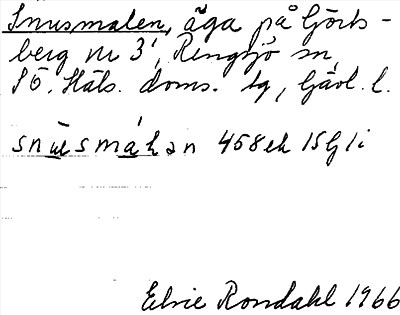 Snusmalen, äga på Görts-
berg nr 3, Rengsjö sn,
SÖ. Häls. doms. tg, Gävl. l.
snusmakən 458ek 15G1i
Elvie Rondahl 1966